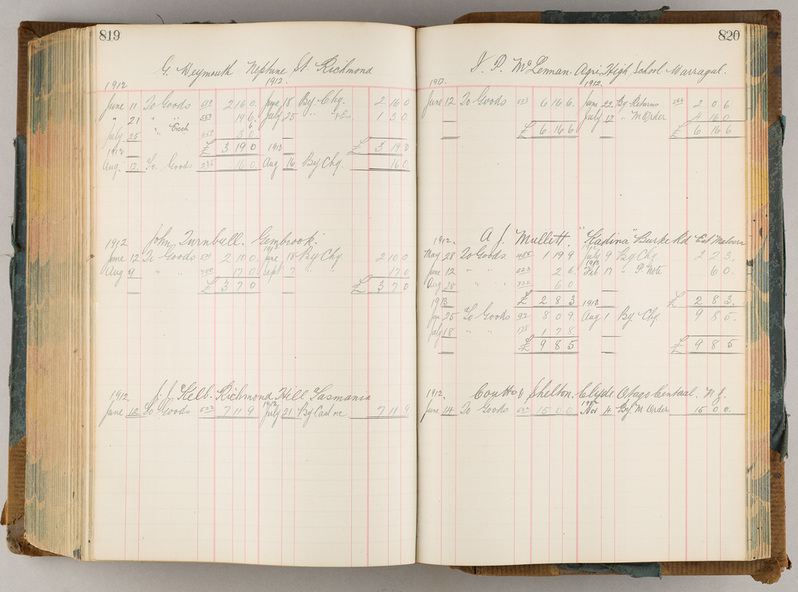 819
G. Heymouth Neptune St Richmond
1912 1912
June 11 To Goods 2 16 0 June 18 By Chq. 2 16 0
" 21 " " 19 6 July 25 " " 1 3 0
July 25 " " Cash 3 6
£ 3 19 0 £ 3 19 0
1913 1913
Aug. 12 To Goods 16 0 Aug 16 By Chq 16 0
1912 John Turnbull. Gembrook.
June 12 To Goods 2 10 0 June 18 By Chq 2 10 0
Aug 9 " " 17 0 Sept 7 " " 17 0
£ 3 7 0 £ 3 7 0
1912 J. J. Kelb. Richmond Hill Tasmania
June 12 To Goods 7 11 9 July 21 By Cash 7 11 9
820
McLennan. Agri. High School Warragul.
1912 1912
June 12 To Goods 6 16 6 June 22 By Returns 2 0 6
July 12 " M Order 4 16 0
£ 6 16 6 £ 6 16 6
1912. A J. Mullett. "Kadina" Burke Rd East Malvern
May 28 To Goods 1 19 9 July 9 By Chq 2 2 3
1913
June 12 " " 2 6 Feb 17 " P. Note 6 0
Aug 28 " " 6 0
1913 £ 2 8 3 1913 £ 2 8 3
June 25 To Goods 8 0 9 Aug 1 By Chq 9 8 5
July 18 " " 1 7 8
£ 9 8 5 £ 9 8 5
1912. Coutts & Shelton. Clyde Otago Central. N.Z.
June 14 To Goods 15 0 0 Nov 4 By M Order 15 0 0